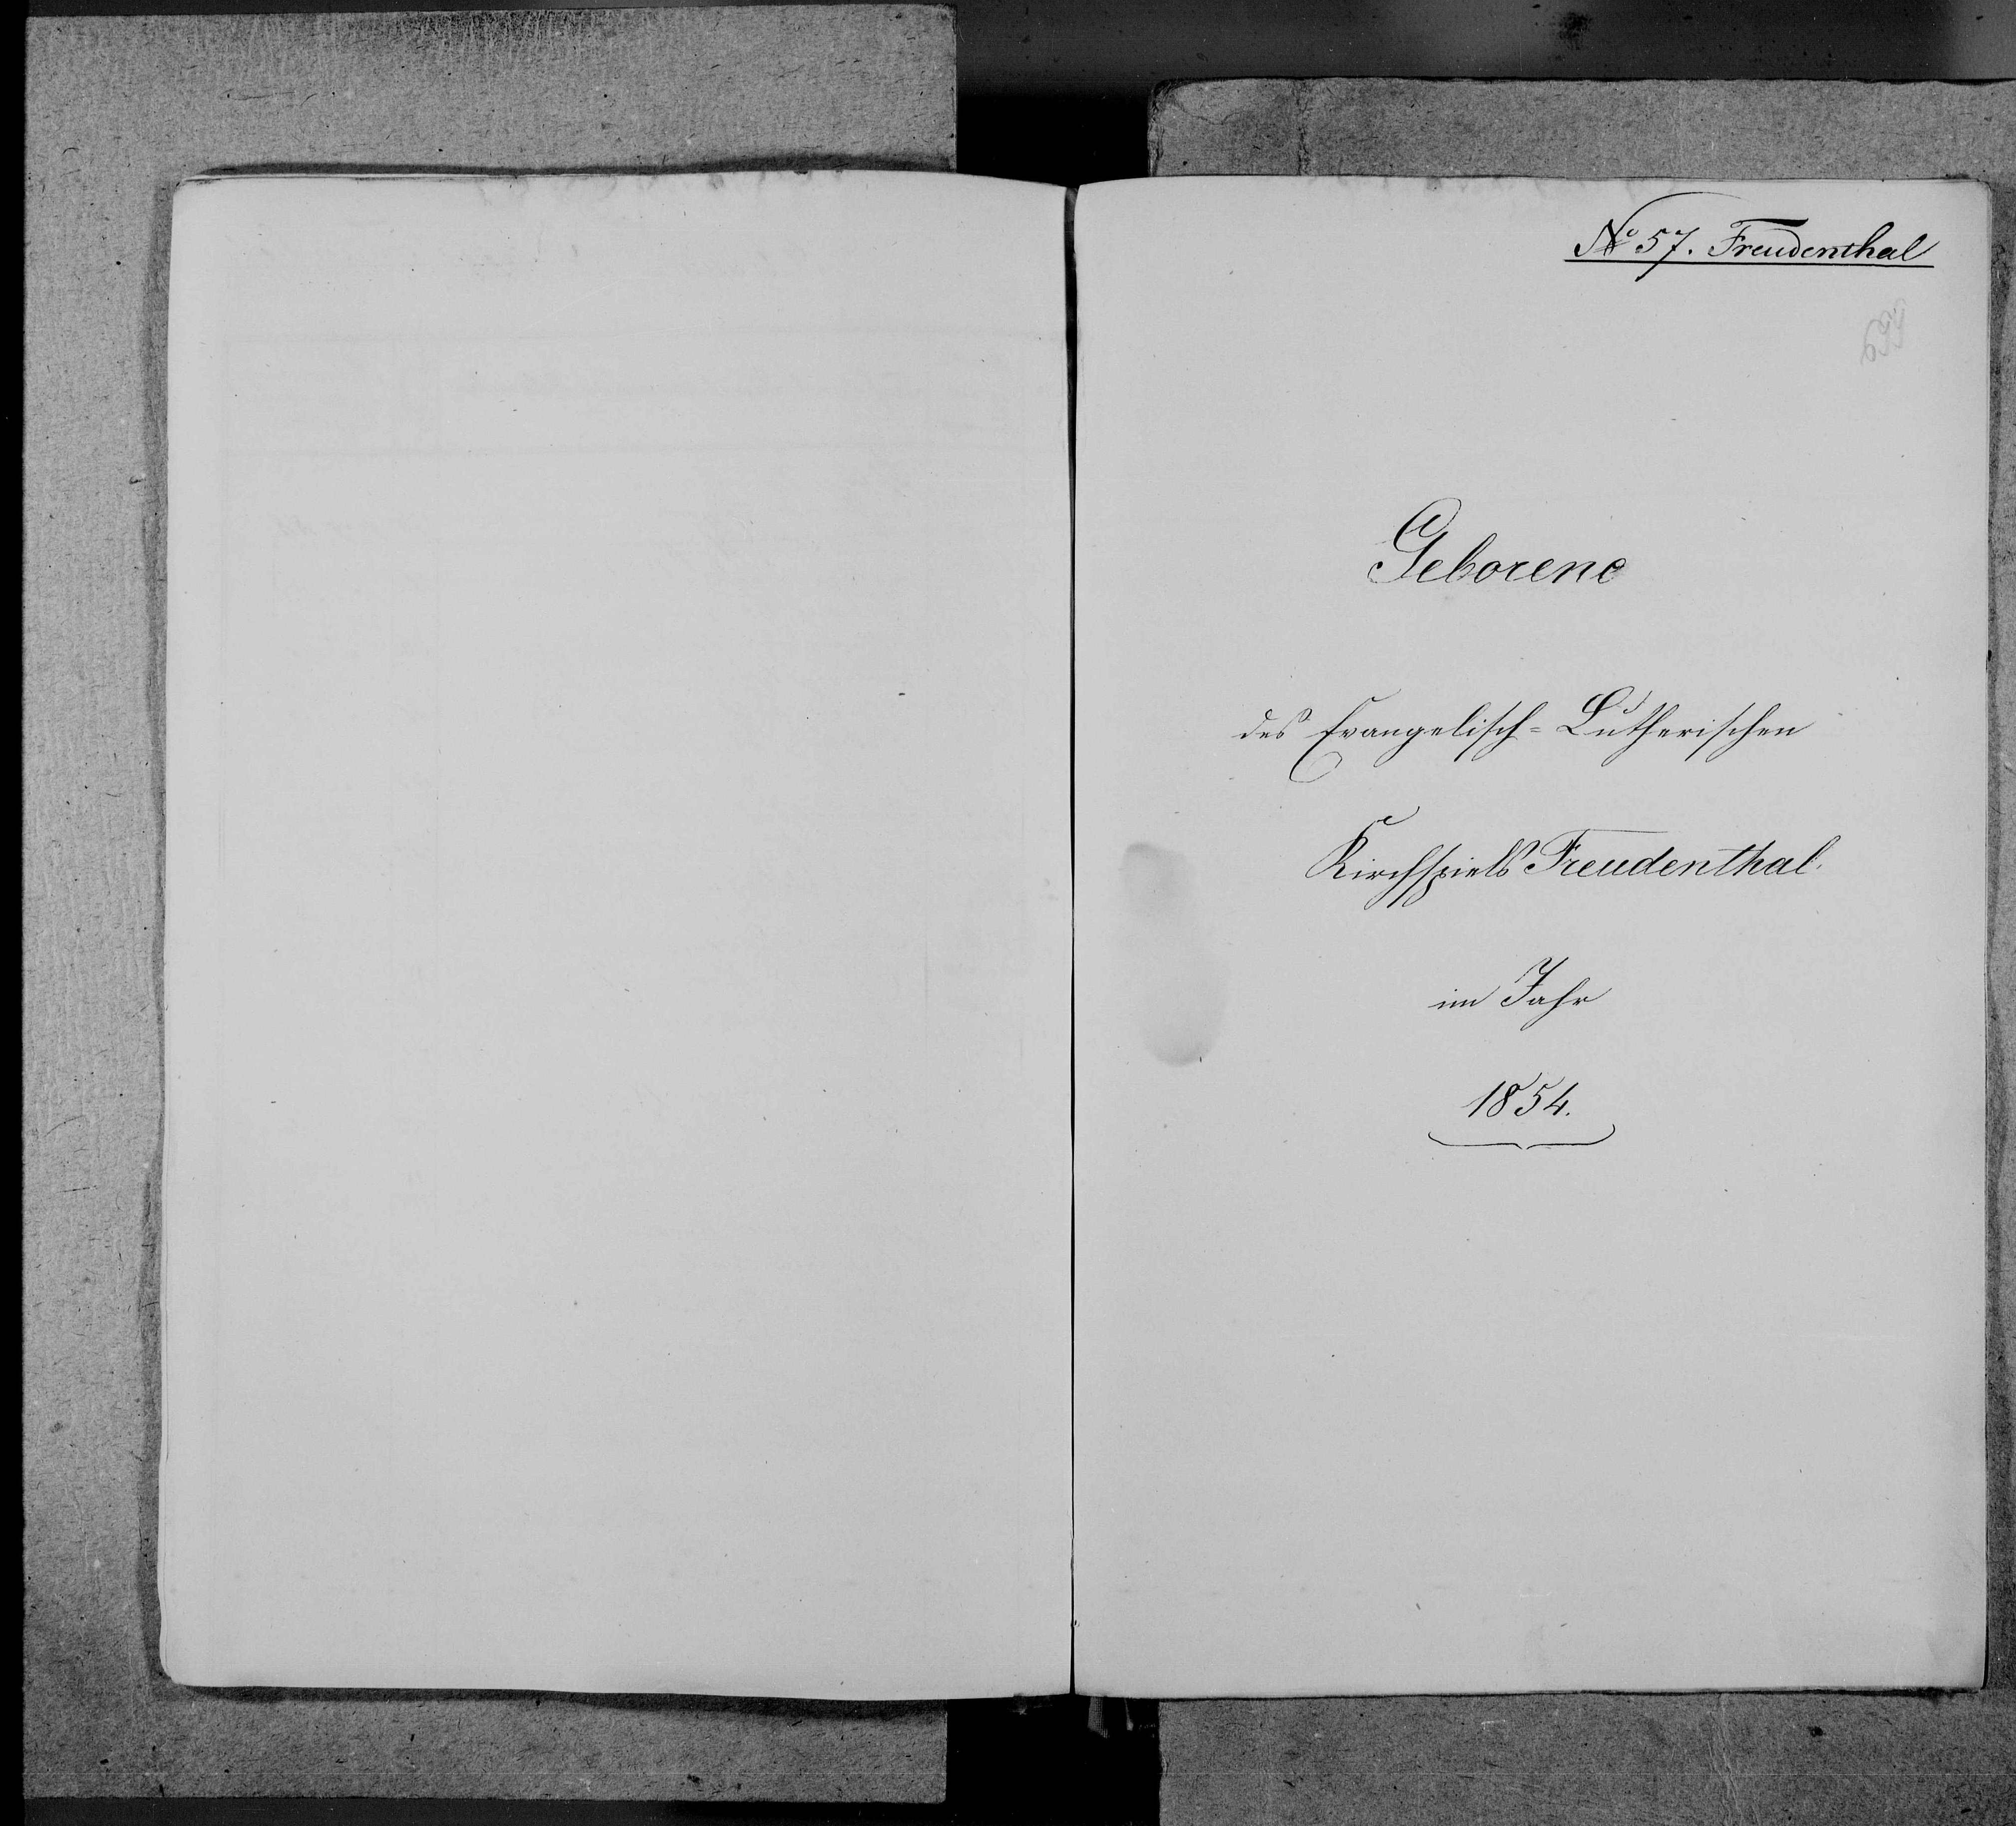 No 57. Freudenthal
Geborene
des Evangelisch=Lutherischen
Kirchspiels Freudenthal.
im Jahr
1854.